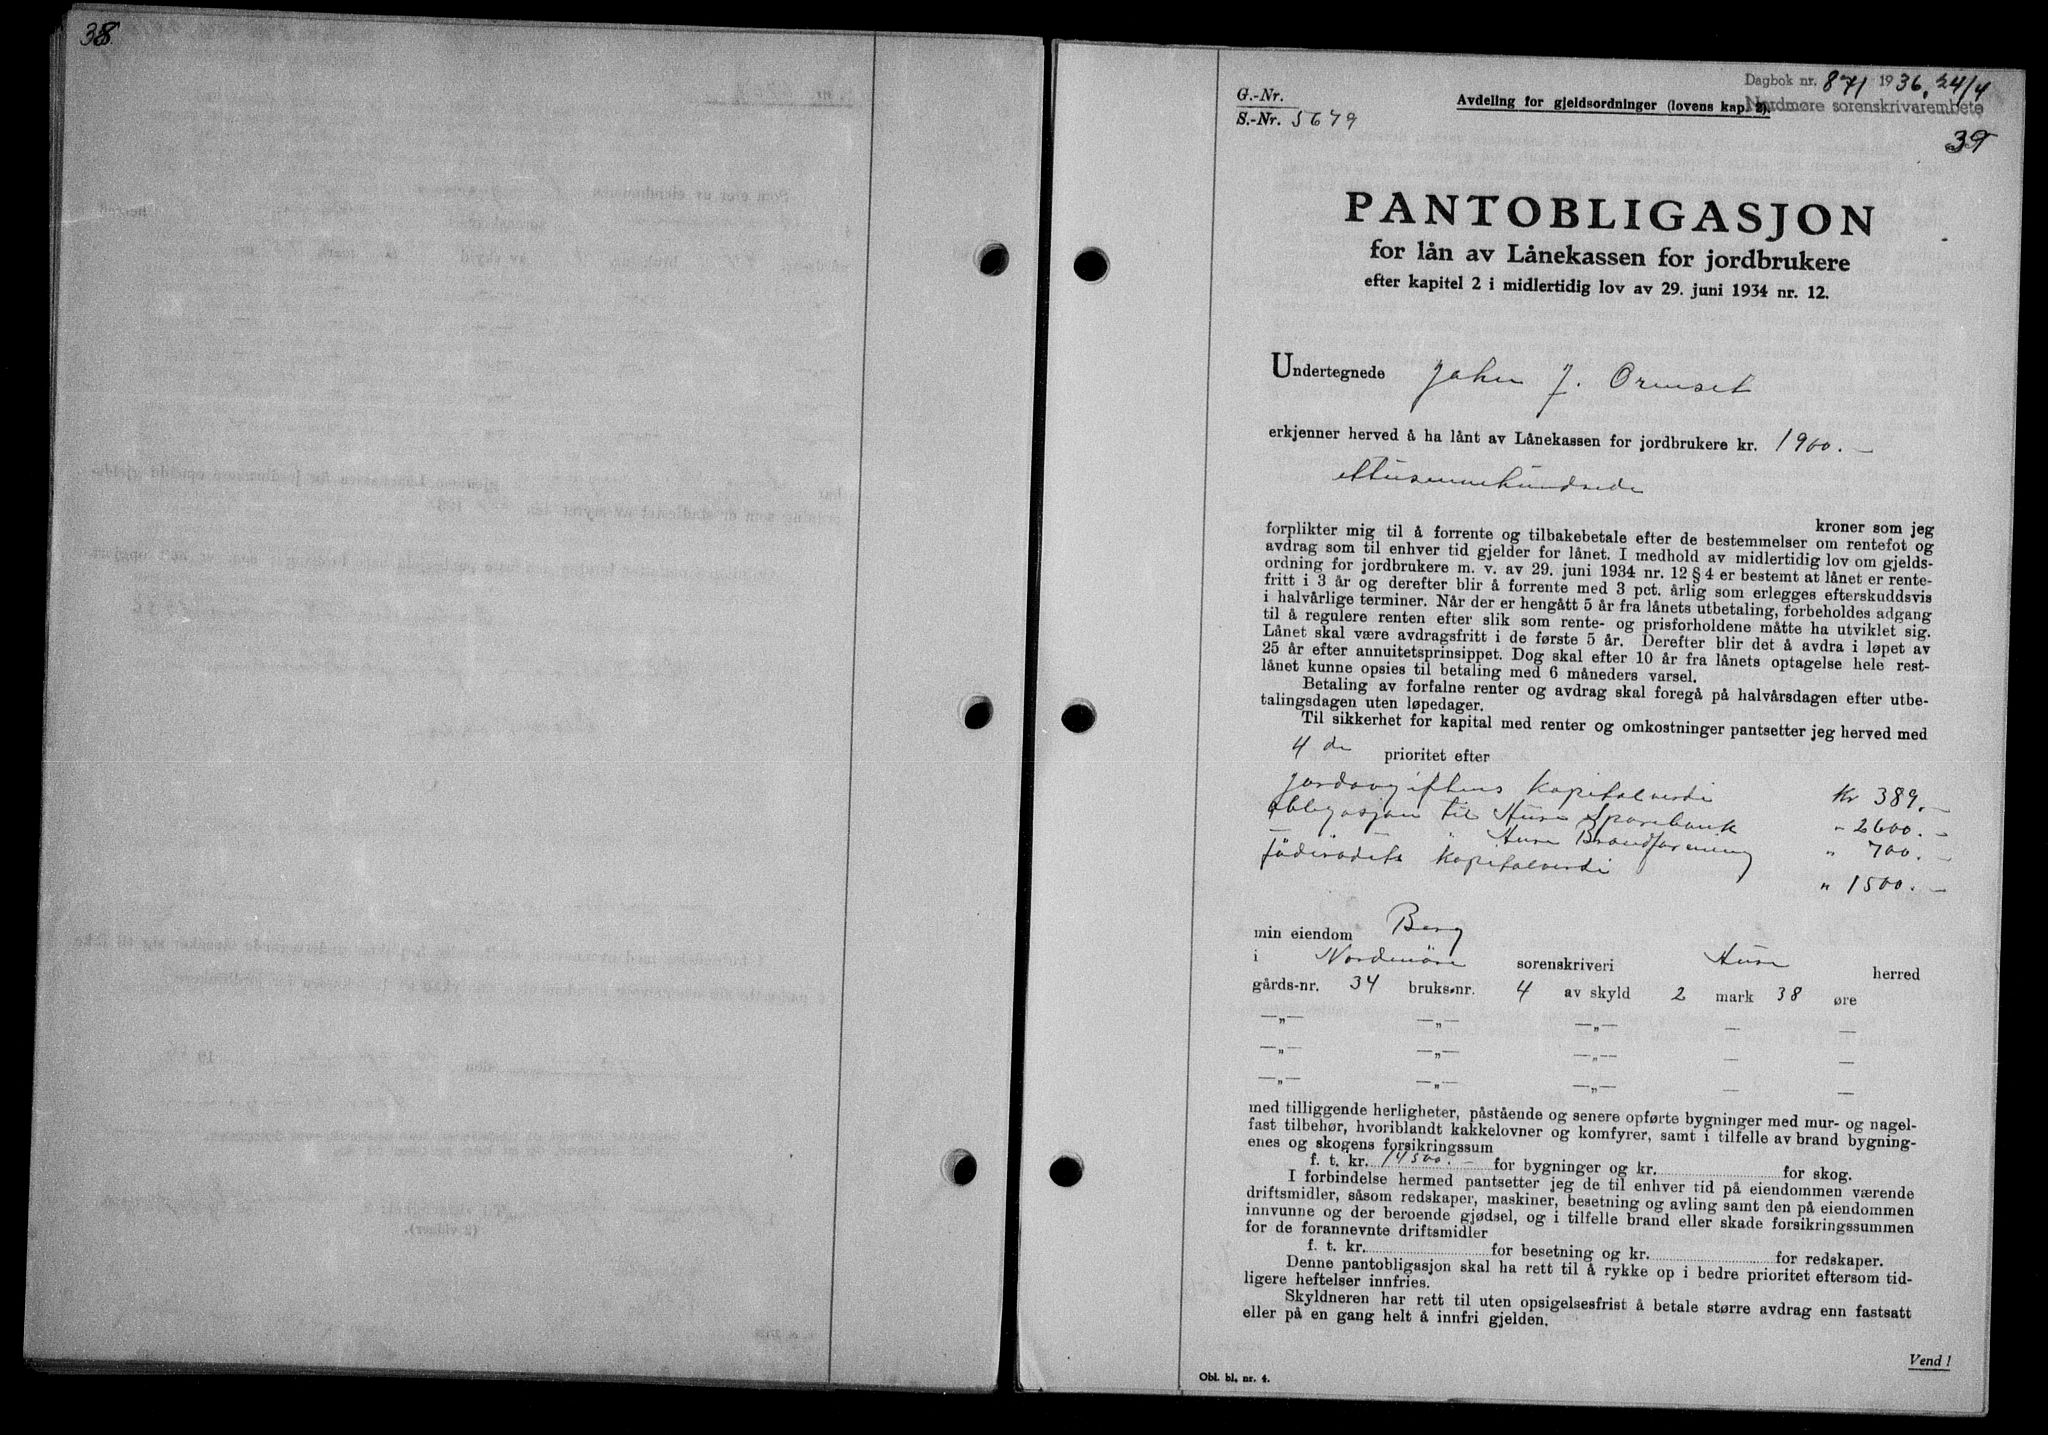 38
Dagbok nr. 871 1936, 24/4
Nordmøre sorenskrivarembete
39
G.-Nr.
S.-Nr. 5679
Avdeling for gjeldsordninger (lovens kap. 2).
PANTOBLIGASJON
for lån av Lånekassen for jordbrukere
efter kapitel 2 i midlertidig lov av 29. juni 1934 nr. 12.
Undertegnede John J. Ormset
erkjenner herved å ha lånt av Lånekassen for jordbrukere kr. 1900.-
kroner som jeg
forplikter mig til å forrente og tilbakebetale efter de bestemmelser om rentefot og
avdrag som til enhver tid gjelder for lånet. I medhold av midlertidig lov om gjelds-
ordning for jordbrukere m. v. av 29. juni 1934 nr. 12 § 4 er bestemt at lånet er rente-
fritt i 3 år og derefter blir å forrente med 3 pct. årlig som erlegges efterskuddsvis
i halvårlige terminer. Når der er hengått 5 år fra lånets utbetaling, forbeholdes adgang
til å regulere renten efter slik som rente- og prisforholdene måtte ha utviklet sig.
Lånet skal være avdragsfritt i de første 5 år. Derefter blir det å avdra i løpet av
25 år efter annuitetsprinsippet. Dog skal efter 10 år fra lånets optagelse hele rest-
lånet kunne opsies til betaling med 6 måneders varsel.
Betaling av forfalne renter og avdrag skal foregå på halvårsdagen efter utbe-
talingsdagen uten løpedager.
Til sikkerhet for kapital med renter og omkostninger pantsetter jeg herved med
4 de prioritet efter
Jordavgiftens Kapitalverdi Kr 389.-
obligasjon til Aure Sparebank " 2600.-
" Aure Brandforening " 700.-
Föderådets Kapitalverdi " 1500.-
min eiendom Berg
i Nordmöre sorenskriveri Aure herred
gårds-nr. 34 bruks-nr. 4 av skyld 2 mark 38 øre
—„— —„— —„— — —
—„— —„— —„— — —
—„— —„— —„— — —
med tilliggende herligheter, påstående og senere opførte bygninger med mur- og nagel-
fast tilbehør, hvoriblandt kakkelovner og komfyrer, samt i tilfelle av brand bygning-
enes og skogens forsikringssum
f. t. kr. 14500.- for bygninger og kr. for skog.
I forbindelse hermed pantsetter jeg de til enhver tid på eiendommen værende
driftsmidler, såsom redskaper, maskiner, besetning og avling samt den på eiendommen
innvunne og der beroende gjødsel, og i tilfelle brand eller skade forsikringssummen
for de forannevnte driftsmidler
f. t. kr. for besetning og kr. for redskaper.
Denne pantobligasjon skal ha rett til å rykke op i bedre prioritet eftersom tid-
ligere heftelser innfries.
Skyldneren har rett til uten opsigelsesfrist å betale større avdrag enn fastsatt
eller på en gang helt å innfri gjelden.
Vend !
Obl. bl. nr. 4.